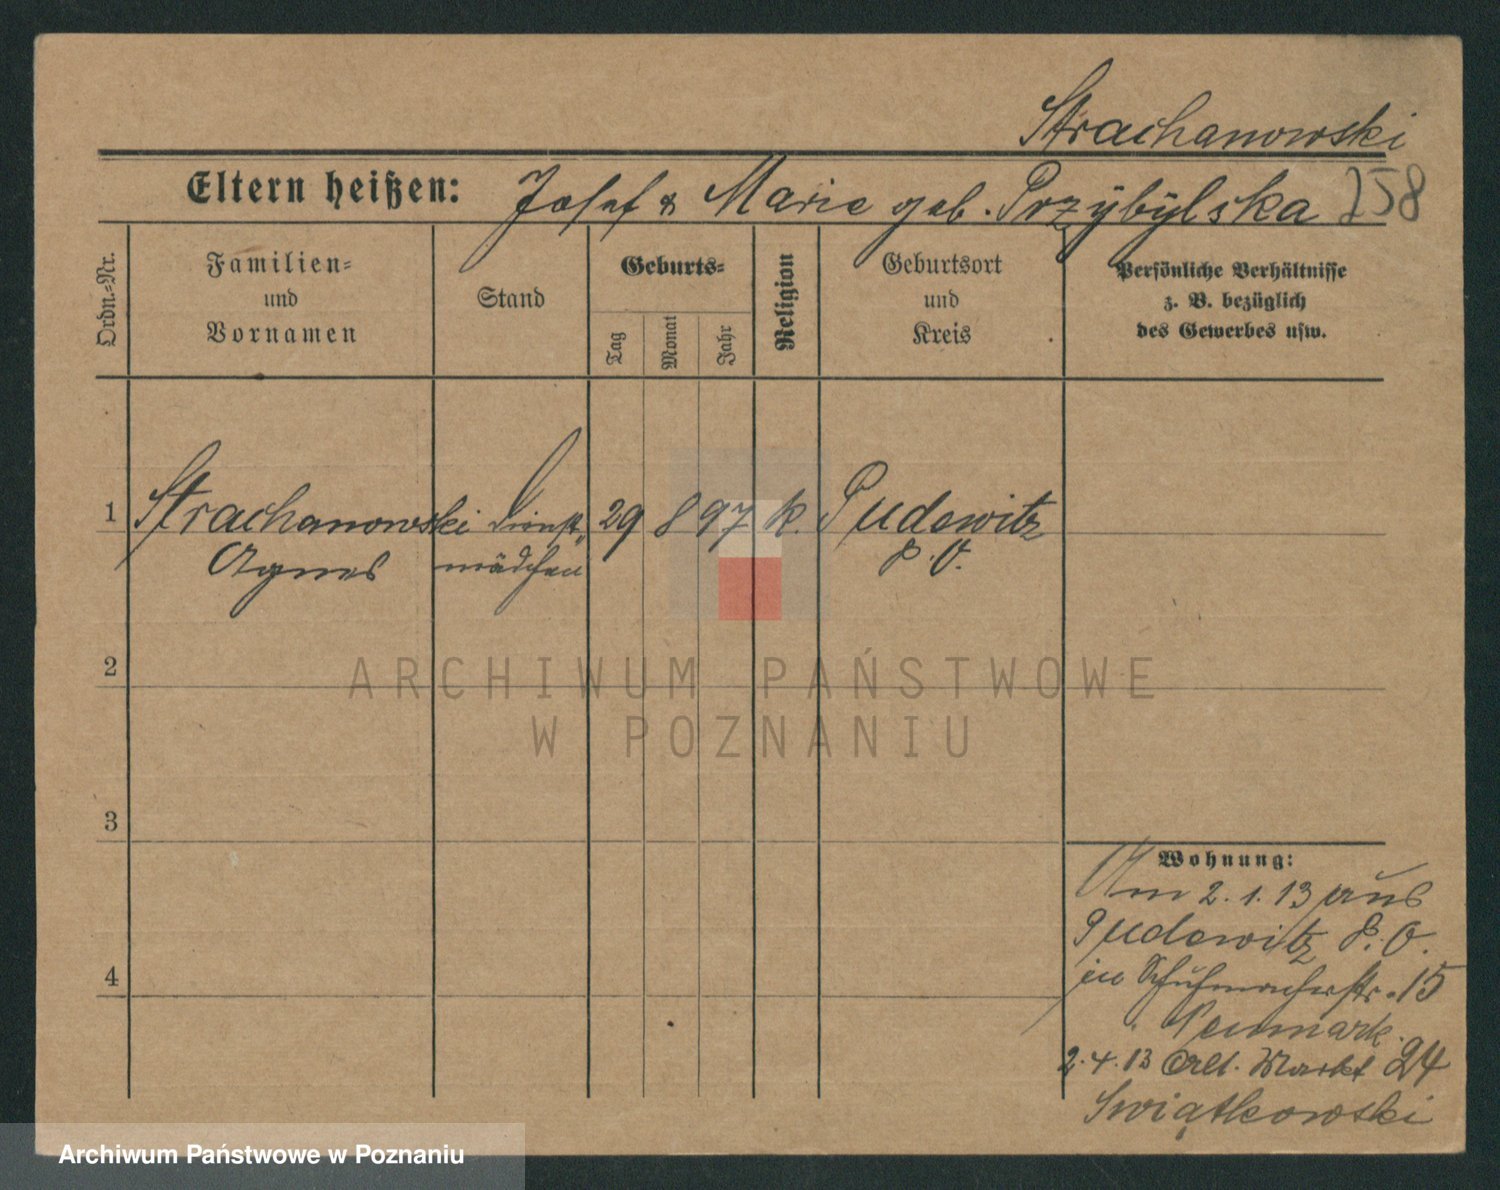 Strachanowski
Eltern heißen: Josef & Marie geb. Przybylska 258
Ordn.-Nr.
Familien-
und
Vornamen
Stand
Geburts-
Tag
Monat
Jahr
Religion
Geburtsort
und
Kreis
Persönliche Verhältnisse
z. B. bezüglich
des Gewerbes usw.
1 Strachanowski Dienst- 29 8 97 k. Pudewitz
Agnes mädchen P. O.
2
ARCHIWUM PAŃSTWOWE
W POZNANIU
3
Wohnung:
Am 2. 1. 13 aus
Pudewitz P. O.
in Schuhmacherstr. 15
" Neumark.
4
2. 4. 13 Alt. Markt 24
Swiątkowski
Archiwum Państwowe w Poznaniu